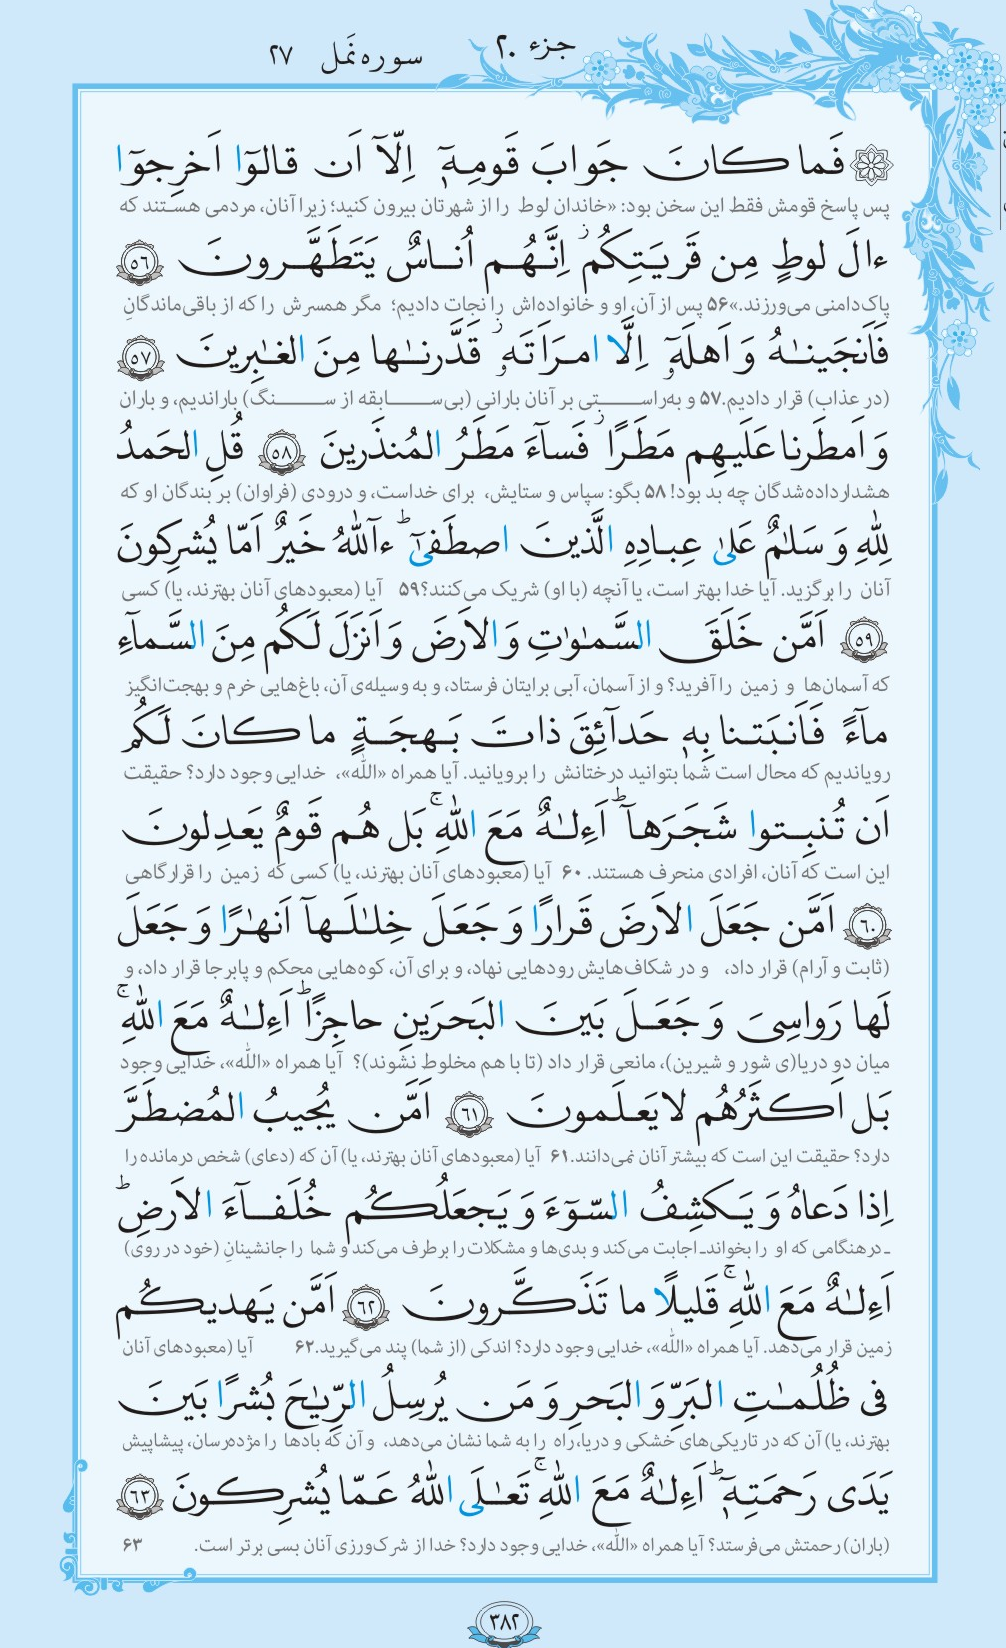 جزء ۲۰
سوره نَمل ۲۷
فَما كانَ جَوابَ قَومِهٖٓ اِلّآ اَن قالوٓا اَخرِجوٓا
پس پاسخ قومش فقط این سخن بود: «خاندان لوط را از شهرتان بیرون کنید؛ زیرا آنان، مردمی هستند که
ءالَ لوطٍ مِن قَريَتِكُم ۖز اِنَّهُم اُناسٌ يَتَطَهَّرونَ ﴿٥٦﴾
پاک‌دامنی می‌ورزند.» ۵۶ پس از آن، او و خانواده‌اش را نجات دادیم؛ مگر همسرش را که از باقی‌ماندگانِ
فَاَنجَينٰهُ وَ اَهلَهٗٓ اِلَّا امرَاَتَهٗ ز قَدَّرنٰها مِنَ الغٰبِرينَ ﴿٥٧﴾
(در عذاب) قرار دادیم. ۵۷ و به‌راستی بر آنان بارانی (بی‌سابقه از سنگ) باراندیم، و باران
وَ اَمطَرنا عَلَيهِم مَطَرًا ز فَسآءَ مَطَرُ المُنذَرينَ ﴿٥٨﴾ قُلِ الحَمدُ
هشدارداده‌شدگان چه بد بود! ۵۸ بگو: سپاس و ستایش، برای خداست، و درودی (فراوان) بر بندگان او که
لِلّٰهِ وَ سَلٰمٌ عَلىٰ عِبادِهِ الَّذينَ اصطَفىٰٓ ؕ ءآللّٰهُ خَيرٌ اَمّا يُشرِكونَ
آنان را برگزید. آیا خدا بهتر است، یا آنچه (با او) شریک می‌کنند؟ ۵۹ آیا (معبودهای آنان بهترند، یا) کسی
﴿٥٩﴾ اَمَّن خَلَقَ السَّمٰوٰتِ وَ الاَرضَ وَ اَنزَلَ لَكُم مِنَ السَّمآءِ
که آسمان‌ها و زمین را آفرید؟ و از آسمان، آبی برایتان فرستاد، و به وسیله‌ی آن، باغ‌هایی خرم و بهجت‌انگیز
مآءً فَاَنبَتنا بِهٖ حَدآئِقَ ذاتَ بَهجَةٍ ما كانَ لَكُم
رویاندیم که محال است شما بتوانید درختانش را برویانید. آیا همراه «الله»، خدایی وجود دارد؟ حقیقت
اَن تُنبِتوا شَجَرَهآ ؕ اَءِلٰهٌ مَعَ اللّٰهِ ۚ بَل هُم قَومٌ يَعدِلونَ
این است که آنان، افرادی منحرف هستند. ۶۰ آیا (معبودهای آنان بهترند، یا) کسی که زمین را قرارگاهی
﴿٦٠﴾ اَمَّن جَعَلَ الاَرضَ قَرارًا وَ جَعَلَ خِلٰلَهآ اَنهٰرًا وَ جَعَلَ
(ثابت و آرام) قرار داد، و در شکاف‌هایش رودهایی نهاد، و برای آن، کوه‌هایی محکم و پابرجا قرار داد، و
لَها رَواسِيَ وَ جَعَلَ بَينَ البَحرَينِ حاجِزًا ؕ اَءِلٰهٌ مَعَ اللّٰهِ ۚ
میان دو دریا(ی شور و شیرین)، مانعی قرار داد (تا با هم مخلوط نشوند)؟ آیا همراه «الله»، خدایی وجود
بَل اَكثَرُهُم لا يَعلَمونَ ﴿٦١﴾ اَمَّن يُجيبُ المُضطَرَّ
دارد؟ حقیقت این است که بیشتر آنان نمی‌دانند. ۶۱ آیا (معبودهای آنان بهترند، یا) آن که (دعای) شخص درمانده را
اِذا دَعاهُ وَ يَكشِفُ السّوٓءَ وَ يَجعَلُكُم خُلَفآءَ الاَرضِ ؕ
ـ در هنگامی که او را بخواند ـ اجابت می‌کند و بدی‌ها و مشکلات را برطرف می‌کند و شما را جانشینانِ (خود در روی)
اَءِلٰهٌ مَعَ اللّٰهِ ۚ قَليلًا ما تَذَكَّرونَ ﴿٦٢﴾ اَمَّن يَهديكُم
زمین قرار می‌دهد. آیا همراه «الله»، خدایی وجود دارد؟ اندکی (از شما) پند می‌گیرید. ۶۲ آیا (معبودهای آنان
فى ظُلُمٰتِ البَرِّ وَ البَحرِ وَ مَن يُرسِلُ الرِّيٰحَ بُشرًا بَينَ
بهترند، یا) آن که در تاریکی‌های خشکی و دریا، راه را به شما نشان می‌دهد، و آن که بادها را مژده‌رسان، پیشاپیش
يَدَى رَحمَتِهٖٓ ؕ اَءِلٰهٌ مَعَ اللّٰهِ ۚ تَعٰلَى اللّٰهُ عَمّا يُشرِكونَ ﴿٦٣﴾
(باران) رحمتش می‌فرستد؟ آیا همراه «الله»، خدایی وجود دارد؟ خدا از شرک‌ورزی آنان بسی برتر است. ۶۳
۳۸۲